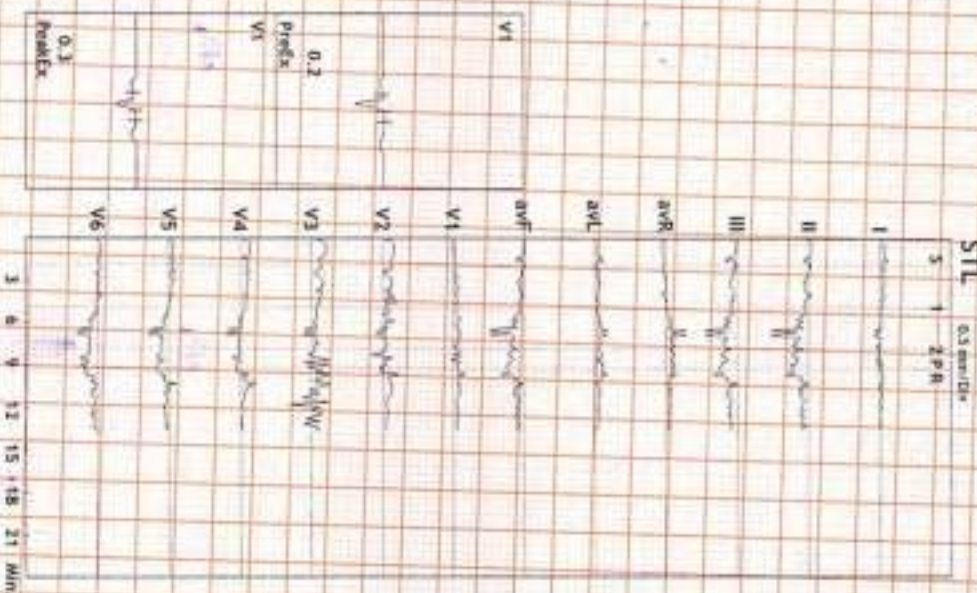 STL 0.5 mm/div
S 1 2 P R
I
II
III
avR
avL
avF
V1
V2
V3
V4
V5
V6
3 6 9 12 15 18 21 Min
V1
0.2
PreEx
V1
0.3
PeakEx